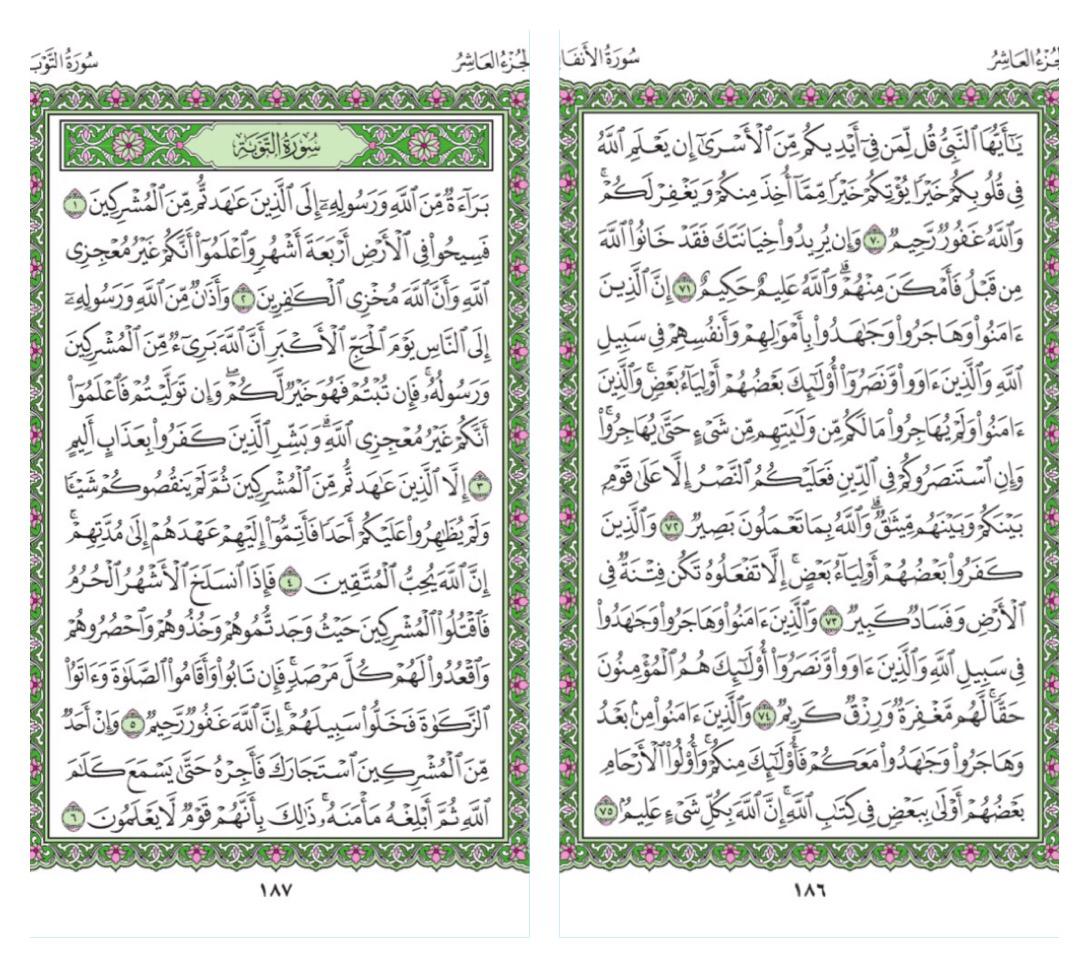 الجزء العاشر
سورة الأنفا
يَـٰٓأَيُّهَا ٱلنَّبِىُّ قُل لِّمَن فِىٓ أَيْدِيكُم مِّنَ ٱلْأَسْرَىٰٓ إِن يَعْلَمِ ٱللَّهُ
فِى قُلُوبِكُمْ خَيْرًا يُؤْتِكُمْ خَيْرًا مِّمَّآ أُخِذَ مِنكُمْ وَيَغْفِرْ لَكُمْ ۗ
وَٱللَّهُ غَفُورٌ رَّحِيمٌ ٧٠ وَإِن يُرِيدُوا۟ خِيَانَتَكَ فَقَدْ خَانُوا۟ ٱللَّهَ
مِن قَبْلُ فَأَمْكَنَ مِنْهُمْ ۗ وَٱللَّهُ عَلِيمٌ حَكِيمٌ ٧١ إِنَّ ٱلَّذِينَ
ءَامَنُوا۟ وَهَاجَرُوا۟ وَجَـٰهَدُوا۟ بِأَمْوَٰلِهِمْ وَأَنفُسِهِمْ فِى سَبِيلِ
ٱللَّهِ وَٱلَّذِينَ ءَاوَوا۟ وَّنَصَرُوٓا۟ أُو۟لَـٰٓئِكَ بَعْضُهُمْ أَوْلِيَآءُ بَعْضٍ ۚ وَٱلَّذِينَ
ءَامَنُوا۟ وَلَمْ يُهَاجِرُوا۟ مَا لَكُم مِّن وَلَـٰيَتِهِم مِّن شَىْءٍ حَتَّىٰ يُهَاجِرُوا۟ ۚ
وَإِنِ ٱسْتَنصَرُوكُمْ فِى ٱلدِّينِ فَعَلَيْكُمُ ٱلنَّصْرُ إِلَّا عَلَىٰ قَوْمٍۭ
بَيْنَكُمْ وَبَيْنَهُم مِّيثَـٰقٌ ۗ وَٱللَّهُ بِمَا تَعْمَلُونَ بَصِيرٌ ٧٢ وَٱلَّذِينَ
كَفَرُوا۟ بَعْضُهُمْ أَوْلِيَآءُ بَعْضٍ ۚ إِلَّا تَفْعَلُوهُ تَكُن فِتْنَةٌ فِى
ٱلْأَرْضِ وَفَسَادٌ كَبِيرٌ ٧٣ وَٱلَّذِينَ ءَامَنُوا۟ وَهَاجَرُوا۟ وَجَـٰهَدُوا۟
فِى سَبِيلِ ٱللَّهِ وَٱلَّذِينَ ءَاوَوا۟ وَّنَصَرُوٓا۟ أُو۟لَـٰٓئِكَ هُمُ ٱلْمُؤْمِنُونَ
حَقًّا ۚ لَّهُم مَّغْفِرَةٌ وَرِزْقٌ كَرِيمٌ ٧٤ وَٱلَّذِينَ ءَامَنُوا۟ مِنۢ بَعْدُ
وَهَاجَرُوا۟ وَجَـٰهَدُوا۟ مَعَكُمْ فَأُو۟لَـٰٓئِكَ مِنكُمْ ۚ وَأُو۟لُوا۟ ٱلْأَرْحَامِ
بَعْضُهُمْ أَوْلَىٰ بِبَعْضٍ فِى كِتَـٰبِ ٱللَّهِ ۗ إِنَّ ٱللَّهَ بِكُلِّ شَىْءٍ عَلِيمٌۢ ٧٥
١٨٦
الجزء العاشر
سورة التوب
سورة التوبة
بَرَآءَةٌ مِّنَ ٱللَّهِ وَرَسُولِهِۦٓ إِلَى ٱلَّذِينَ عَـٰهَدتُّم مِّنَ ٱلْمُشْرِكِينَ ١
فَسِيحُوا۟ فِى ٱلْأَرْضِ أَرْبَعَةَ أَشْهُرٍ وَٱعْلَمُوٓا۟ أَنَّكُمْ غَيْرُ مُعْجِزِى
ٱللَّهِ ۙ وَأَنَّ ٱللَّهَ مُخْزِى ٱلْكَـٰفِرِينَ ٢ وَأَذَٰنٌ مِّنَ ٱللَّهِ وَرَسُولِهِۦٓ
إِلَى ٱلنَّاسِ يَوْمَ ٱلْحَجِّ ٱلْأَكْبَرِ أَنَّ ٱللَّهَ بَرِىٓءٌ مِّنَ ٱلْمُشْرِكِينَ ۙ
وَرَسُولُهُۥ ۚ فَإِن تُبْتُمْ فَهُوَ خَيْرٌ لَّكُمْ ۖ وَإِن تَوَلَّيْتُمْ فَٱعْلَمُوٓا۟
أَنَّكُمْ غَيْرُ مُعْجِزِى ٱللَّهِ ۗ وَبَشِّرِ ٱلَّذِينَ كَفَرُوا۟ بِعَذَابٍ أَلِيمٍ
٣ إِلَّا ٱلَّذِينَ عَـٰهَدتُّم مِّنَ ٱلْمُشْرِكِينَ ثُمَّ لَمْ يَنقُصُوكُمْ شَيْـًٔا
وَلَمْ يُظَـٰهِرُوا۟ عَلَيْكُمْ أَحَدًا فَأَتِمُّوٓا۟ إِلَيْهِمْ عَهْدَهُمْ إِلَىٰ مُدَّتِهِمْ ۚ
إِنَّ ٱللَّهَ يُحِبُّ ٱلْمُتَّقِينَ ٤ فَإِذَا ٱنسَلَخَ ٱلْأَشْهُرُ ٱلْحُرُمُ
فَٱقْتُلُوا۟ ٱلْمُشْرِكِينَ حَيْثُ وَجَدتُّمُوهُمْ وَخُذُوهُمْ وَٱحْصُرُوهُمْ
وَٱقْعُدُوا۟ لَهُمْ كُلَّ مَرْصَدٍ ۚ فَإِن تَابُوا۟ وَأَقَامُوا۟ ٱلصَّلَوٰةَ وَءَاتَوُا۟
ٱلزَّكَوٰةَ فَخَلُّوا۟ سَبِيلَهُمْ ۚ إِنَّ ٱللَّهَ غَفُورٌ رَّحِيمٌ ٥ وَإِنْ أَحَدٌ
مِّنَ ٱلْمُشْرِكِينَ ٱسْتَجَارَكَ فَأَجِرْهُ حَتَّىٰ يَسْمَعَ كَلَـٰمَ
ٱللَّهِ ثُمَّ أَبْلِغْهُ مَأْمَنَهُۥ ۚ ذَٰلِكَ بِأَنَّهُمْ قَوْمٌ لَّا يَعْلَمُونَ ٦
١٨٧